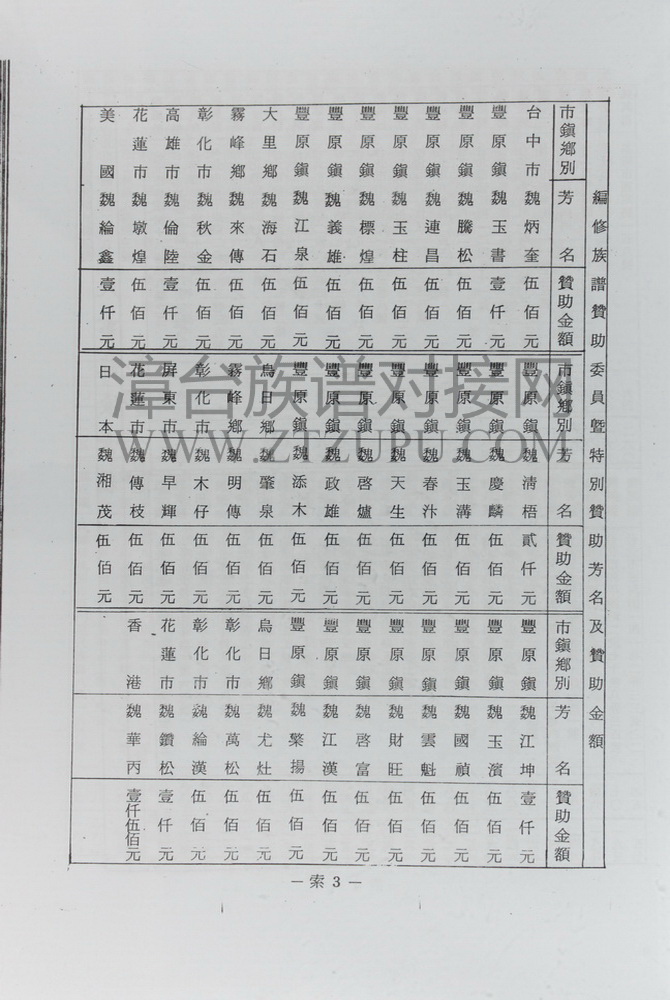 編修族譜贊助委員暨特別贊助芳名及贊助金額
市鎮鄉別 芳名 贊助金額
台中市 魏炳奎 伍佰元
豐原鎮 魏玉書 壹仟元
豐原鎮 魏騰松 伍佰元
豐原鎮 魏連昌 伍佰元
豐原鎮 魏玉柱 伍佰元
豐原鎮 魏標煌 伍佰元
豐原鎮 魏義雄 伍佰元
豐原鎮 魏江泉 伍佰元
大里鄉 魏海石 伍佰元
霧峰鄉 魏來傳 伍佰元
彰化市 魏秋金 伍佰元
高雄市 魏倫陸 壹仟元
花蓮市 魏墩煌 伍佰元
美國 魏綸鑫 壹仟元
市鎮鄉別 芳名 贊助金額
豐原鎮 魏清梧 貳仟元
豐原鎮 魏慶麟 伍佰元
豐原鎮 魏玉溝 伍佰元
豐原鎮 魏春汴 伍佰元
豐原鎮 魏天生 伍佰元
豐原鎮 魏啓爐 伍佰元
豐原鎮 魏政雄 伍佰元
豐原鎮 魏添木 伍佰元
烏日鄉 魏肇泉 伍佰元
霧峰鄉 魏明傳 伍佰元
彰化市 魏木仔 伍佰元
屏東市 魏早輝 伍佰元
花蓮市 魏傳枝 伍佰元
日本 魏湘茂 伍伯元
市鎮鄉別 芳名 贊助金額
豐原鎮 魏江坤 壹仟元
豐原鎮 魏玉濱 伍佰元
豐原鎮 魏國禎 伍佰元
豐原鎮 魏雲魁 伍佰元
豐原鎮 魏財旺 伍佰元
豐原鎮 魏啓富 伍佰元
豐原鎮 魏江漢 伍佰元
豐原鎮 魏揚 伍佰元
烏日鄉 魏尤灶 伍佰元
彰化市 魏萬松 伍佰元
彰化市 魏綸漢 伍佰元
花蓮市 魏鑽松 壹仟元
香港 魏華丙 壹仟伍佰元
—索3—
漳台族谱对接网
WWW.ZTZUPU.COM